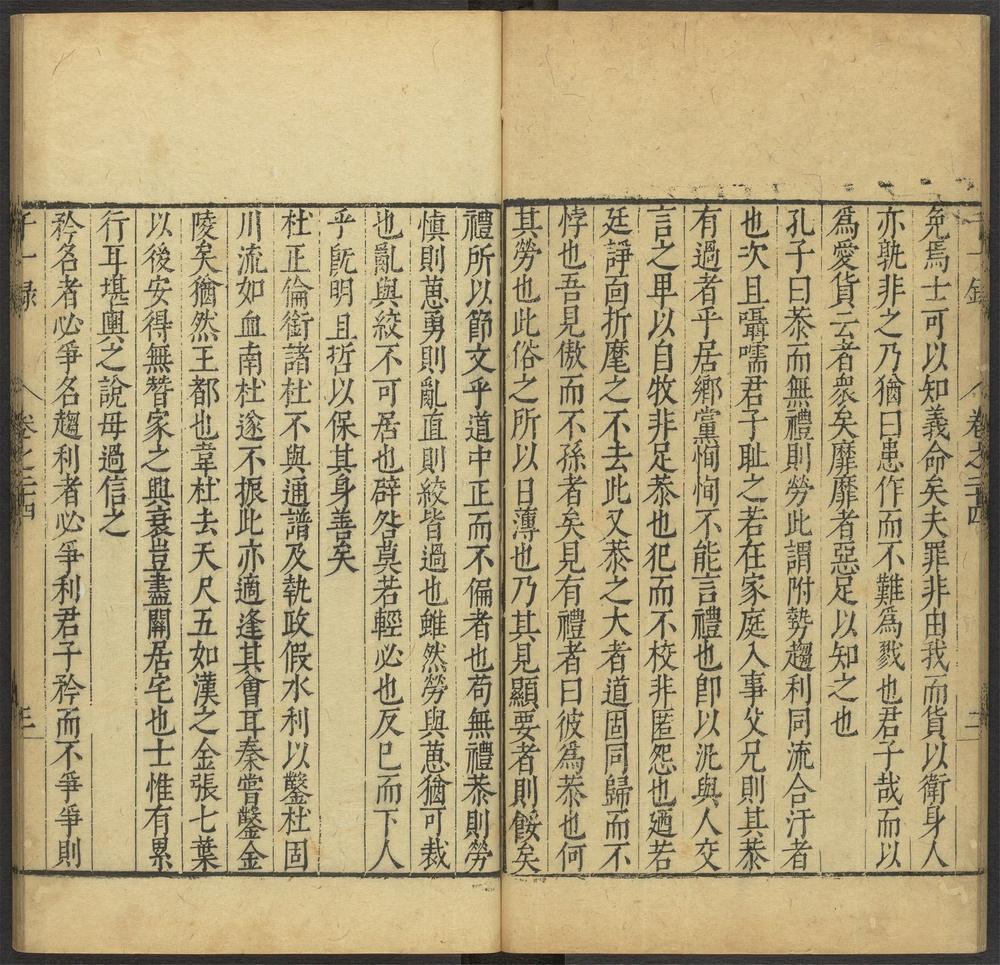 千一錄 卷之二十四 二
免焉士可以知義命矣夫罪非由我而貨以衛身人
亦孰非之乃猶曰患作而不難為戮也君子哉而以
為愛貨云者衆矣靡靡者惡足以知之也
孔子曰恭而無禮則勞此謂附勢趨利同流合汙者
也次且囁嚅君子耻之若在家庭入事父兄則其恭
有過者乎居鄉黨恂恂不能言禮也卽以泥與人交
言之卑以自牧非足恭也犯而不校非匿怨也廼若
廷諍面折麾之不去此又恭之大者道固同歸而不
悖也吾見傲而不孫者矣見有禮者曰彼為恭也何
其勞也此俗之所以日薄也乃其見顯要者則餒矣
禮所以節文乎道中正而不偏者也苟無禮恭則勞
慎則葸勇則亂直則絞皆過也雖然勞與葸猶可裁
也亂與絞不可居也辟咎莫若輕必也反已而下人
乎旣明且哲以保其身善矣
杜正倫銜諸杜不與通譜及執政假水利以鑿杜固
川流如血南杜遂不振此亦適逢其會耳秦嘗鑿金
陵矣猶然王都也韋杜去天尺五如漢之金張七葉
以後安得無替家之興衰豈盡關居宅也士惟有累
行耳堪輿之說毋過信之
矜名者必爭名趨利者必爭利君子矜而不爭爭則
千一錄 卷之二十四 三